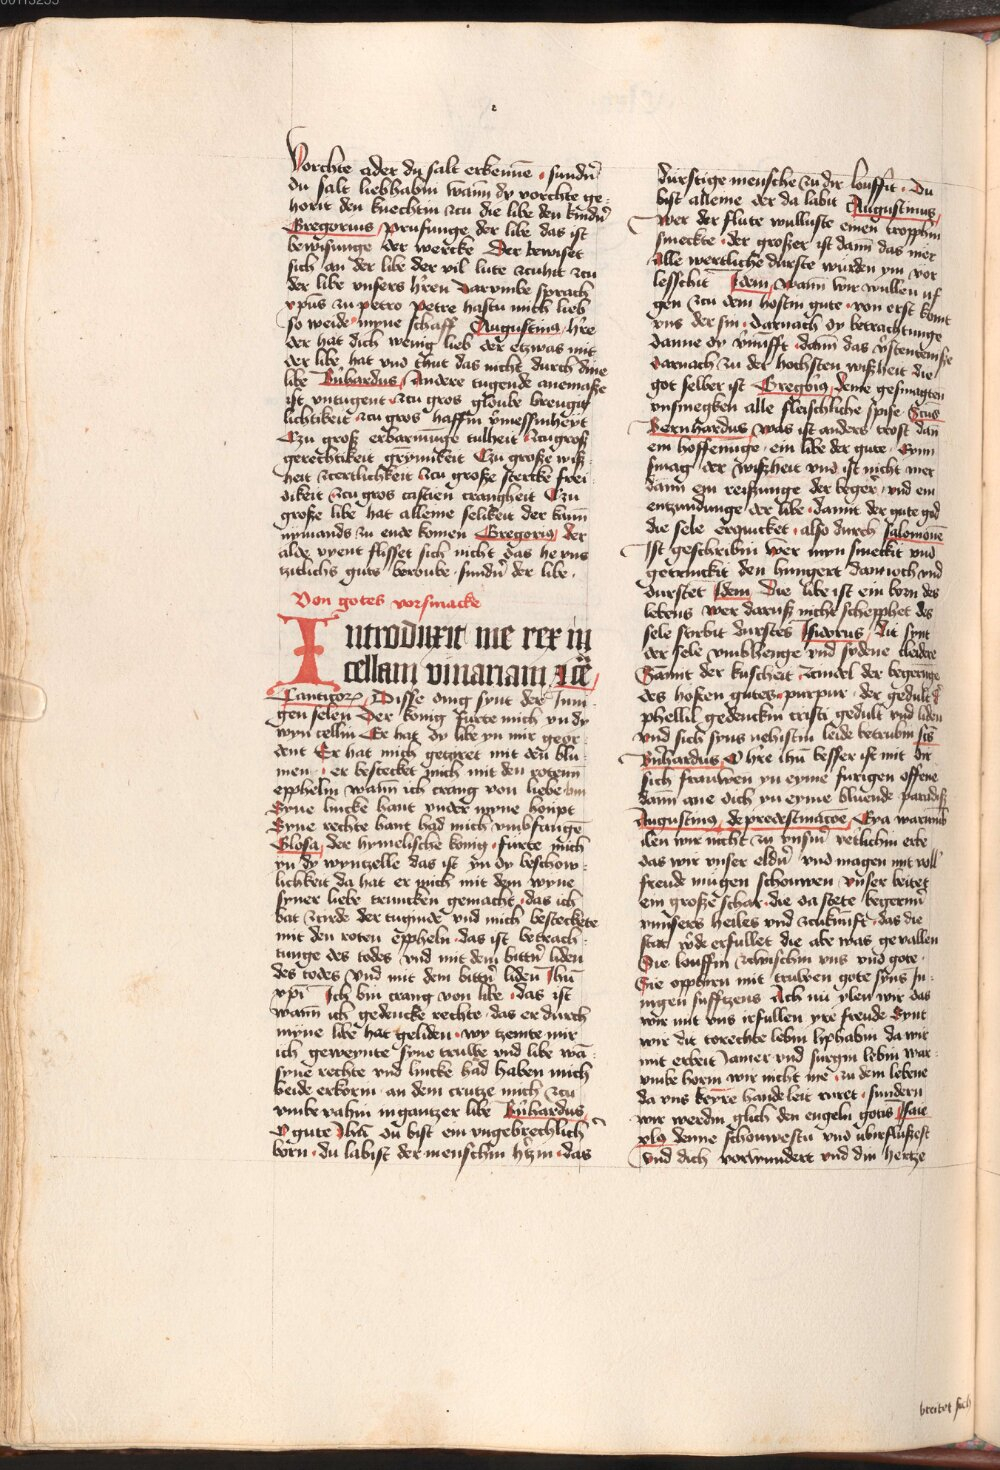 Vorchte ader du salt erkenne sundn̄
du salt liebhabin wann dy vorchte ge
horit den knechtin zcu die libe den kindn̄
Gregorius prufunge der libe das ist
bewisunge der wercke Der bewiset
sich an der libe der vil lute zcuhit zcu
der libe unsers hren Darumbe sprach
xpus zu petro petre hastu mich lieb
so weide myne schaff Augustinus hre
der hat dich wenig lieb der etzwas mit
der libe hat vnd thut das nicht durch dine
libe Bnhardus Andere tugende anemasse
ist untugent zcu gros gloube brengit
lichtikeit zcu gros haffin vmessinheyt
Czu groß erbarmunge tulheit zcu groß
gerechtikeit grymikeit Czu große wiß
heit zcertlichkeit zcu große stercke frei
dikeit zcu gros castien crangheit Czu
große libe hat alleine selikeit der kunn
nymands zu ende komen Gregorius der
alde vyent flisset sich nicht das her uns
tzitlichs guts beroube sundn̄ der libe
Von gotes vorsmacke
Introduxit me rex in
cellam vinariam &ce
Canticorum Disse ding synt der Inni
gen selen Der konig furte mich yn dy
wyn cellin Er hat dy libe yn mir geor
dent Er hat mich geczret mit den blu
men er bestecket mich mit den rotenn
epphelin wann ich crang von liebe bin
Syne lincke hant under myne houpt
Syne rechte hant had mich umbfange
Glosa der hymelische konig furte mich
yn dy wyntzelle das ist yn dy beschow
lichkeit da hat er mich mit dem wyne
syner liebe truncken gemacht das ich
hat zcirde der tuginde vnd mich besteckete
mit den roten eppheln das ist betrach
tunge des todes vnd mit dem bittn̄ liden
des todes vnd mit dem bittn̄ liden Ihu
xpi Ich bin crang von libe das ist
wann ich gedencke rechte das er durch
myne libe hat geliden wy tzemte mir
ich geweynte syne truwe vnd libe wā
syne rechte vnd lincke had haben mich
beide erkorn an dem crutze mich zcu
umbevahin in gantzer libe Bnhardus
O gute Ihu du bist ein ungebrechlich
born du labist der menschin hrzin das
durstige mensche zu dir louffit Du
bist alleine der da labit Augustinus
wer der flute wulluste einen tropphin
smeckte der großer ist dann das mer
Alle wertliche durste wurden ym vor
lesschit Idem wann wir wullen uf
gen zcu dem hostin gute von erst komt
uns der sin darnach dy betrachtunge
danne dy vnufft dann das vstentenisse
darnach zu der hochsten wißheit die
got selber ist Gregorius deme gesmagten
unsmegken alle fleischliche spise Scus
Bernhardus was ist anders trost dan
ein hoffenuge ein libe der gute Eynn
smag der wißheit vnd ist nicht mer
dann ein reißunge der beger vnd ein
entzundunge der libe damit der gute god
die sele erquicket also durch Salomone
Ist geschribin wer myn smeckit vnd
getrinckit den hungert dannoch vnd
durstet Idem Die libe ist ein born des
lebens wer daruß nicht schepphet des
sele stirbit durstes Isidorus dit synt
der sele umbhenge vnd sydene cleidere
Sammt der kuscheit zcindel der begerüge
des hosten gutes purpur der gedult
phellil gedenckin cristi gedult vnd liden
vnd sich syns nehistin leide betrubin scs
Bnhardus O hre ihu besser ist mit dir
sich frauwen yn eyme furigen offene
dann ane dich yn eyme bluende paradiß
Augustinus de predestinacoe Eya warumb
ilen wir nicht zu unsm̄ vetlichin erbe
das wir unser eldn̄ vnd magen mit voll
freude mugen schouwen unser beitet
ein große schar die da stete begernn̄
unnsers heiles vnd zcukunft das die
stat werde erfullet die abe was gevallen
Die louffin zcwischin uns und gote
Sie opphirn mit truwen gote syns In
nigen sufftzens Ach nu ylen wir das
wir mit uns irfullen yre freude Synt
wir dit torechte lebin liphabin da wir
mit erbeit Jamer und surgin lebin war
umbe horin wir nicht me zu dem lebene
da uns keyne hande leit ruret sundern
wir werdin glich den engeln gotis Isaie
xlo denne schouwestu vnd ubirflußest
vnd dich vorwundert vnd din hertze
breitet sich